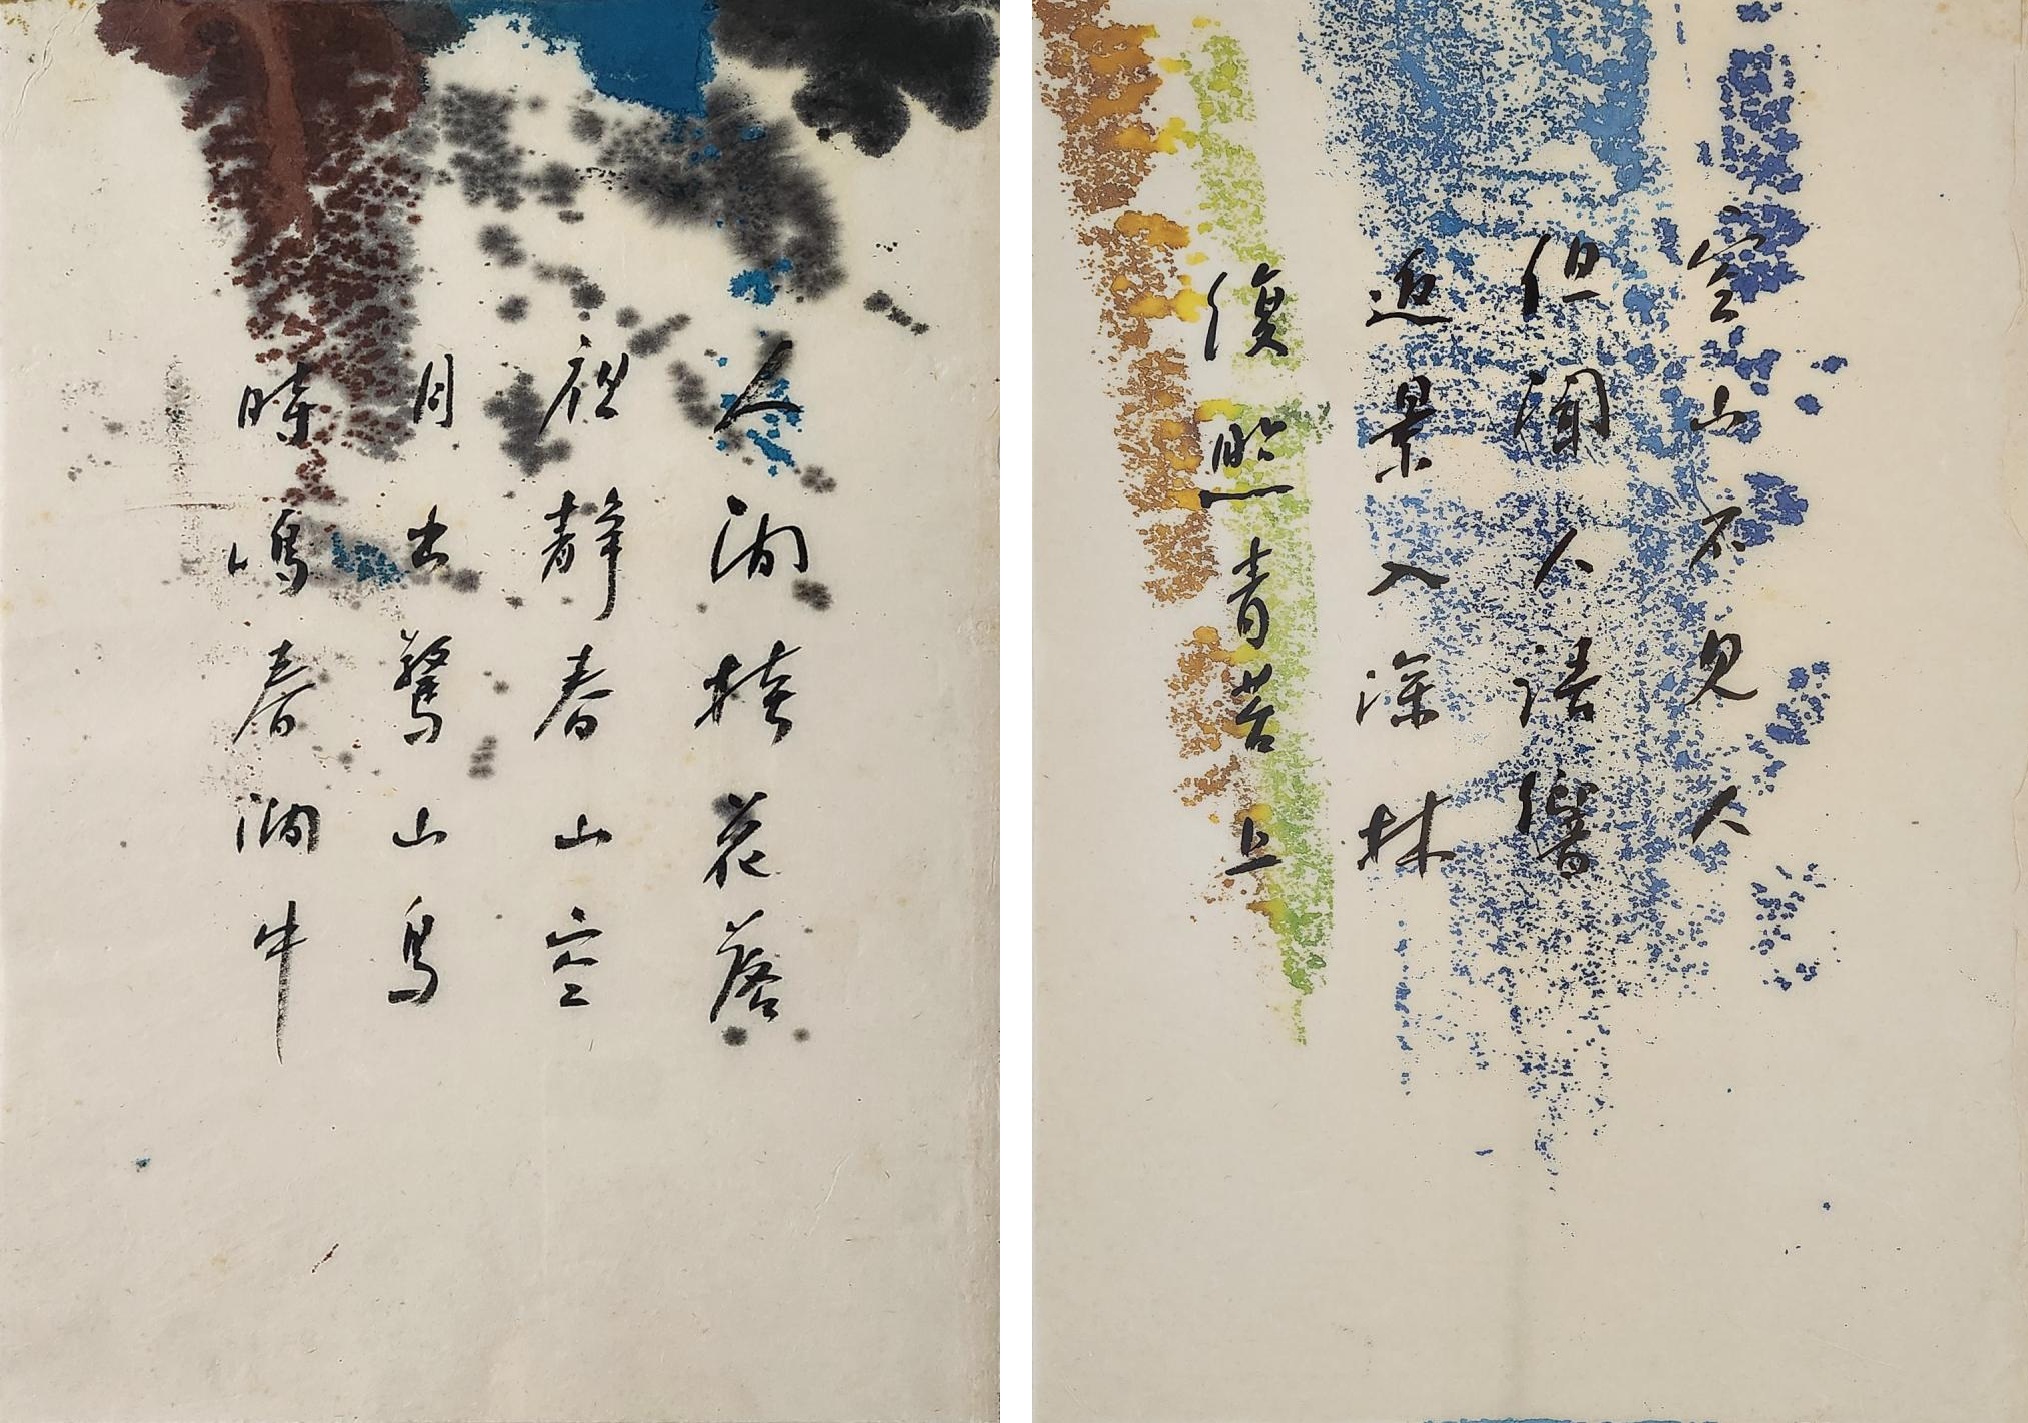 空山不見人
但聞人語響
返景入深林
復照青苔上
人閒桂花落
夜靜春山空
月出驚山鳥
時鳴春澗中